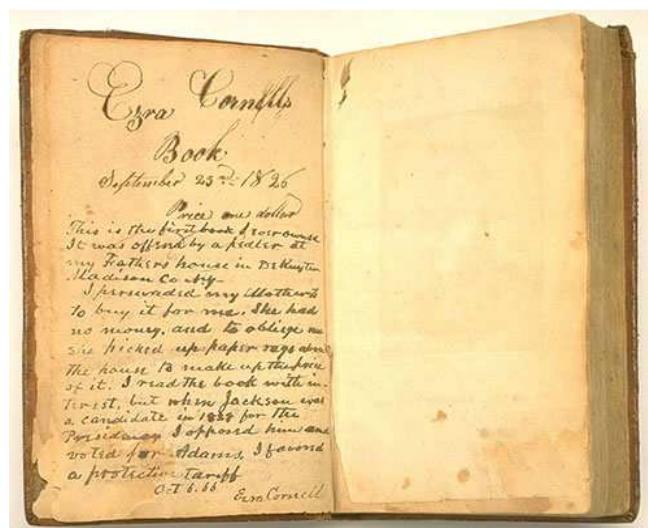 Ezra Cornells
Book
September 23rd 1826
Price one dollar
This is the first book I ever owned
It was offered by a pedler at
my Fathers house in DeRuyter
Madison Co NY-
I persuaded my Mother to
to buy it for me. She had
no money, and to obliege me
she picked up paper rags about
the house to make up the price
of it. I read the book with in-
terest, but when Jackson was
a candidate in 1828 for the
Presidency I opposed him and
voted for Adams, I favored
a protective tariff
Oct 6. 66
Ezra Cornell